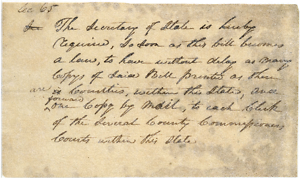 Sec 65
The Secretary of State is hereby
required, So soon as this bill becomes
a law, to have without delay as many
Copys of said Bill printed as there
are Counties, within this State, and
forward
one Copy by Mail, to each Clerk
of the Several County Commissioners
Courts within this State